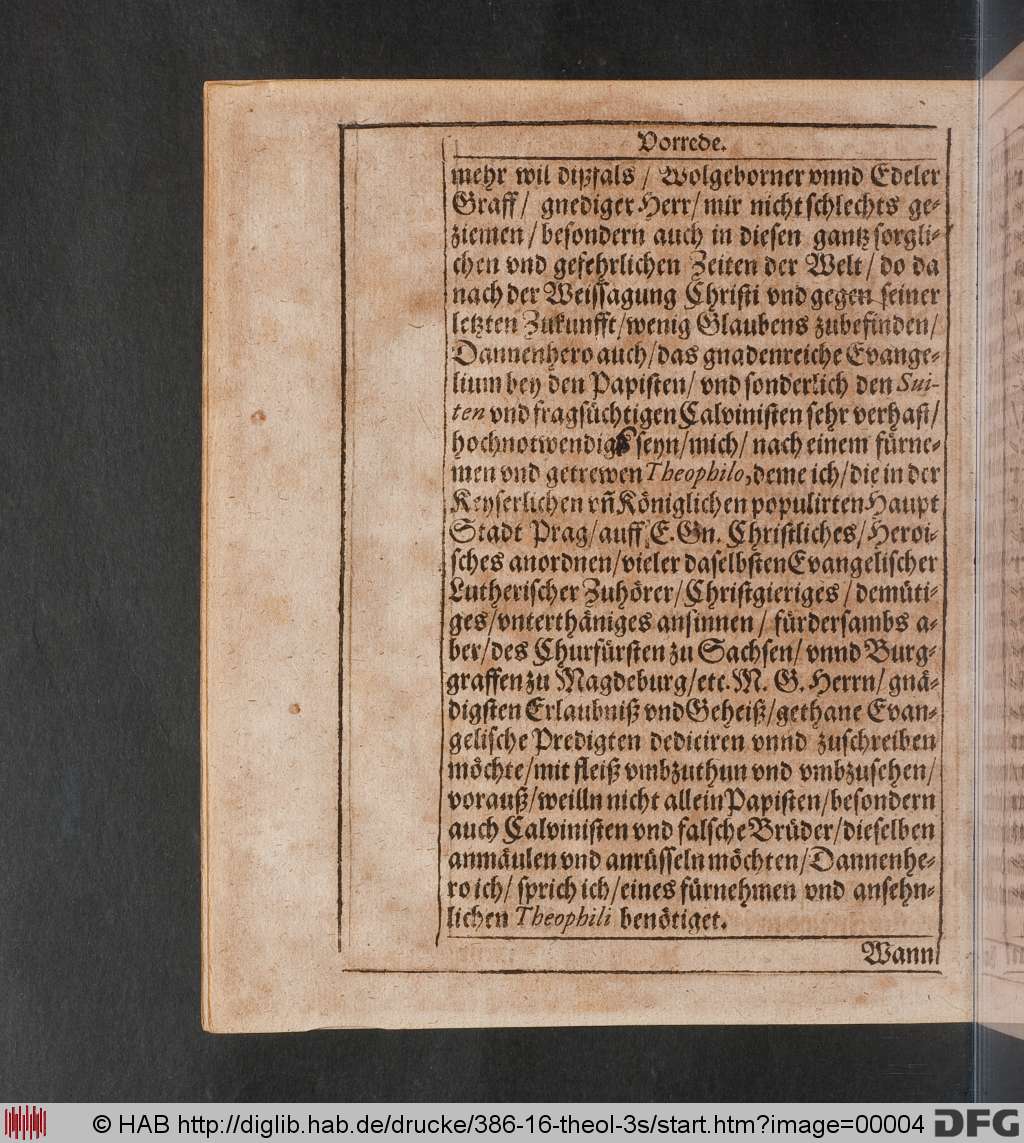 Vorrede.
mehr wil dißfals / Wolgeborner vnnd Edeler
Graff / gnediger Herr / mir nicht schlechts ge-
ziemen / besondern auch in diesen gantz sorgli-
chen vnd gefehrlichen Zeiten der Welt / do da
nach der Weissagung Christi vnd gegen seiner
letzten Zukunfft / wenig Glaubens zubefinden /
Dannenhero auch / das gnadenreiche Evange-
lium bey den Papisten / vnd sonderlich den Sui-
ten vnd fragsüchtigen Calvinisten sehr verhast /
hochnotwendig seyn / mich / nach einem fürne-
men vnd getrewen Theophilo, deme ich / die in der
Keyserlichen vñ Königlichen populirten Haupt
Stadt Prag / auff E. Gn. Christliches / Heroi-
sches anordnen / vieler daselbsten Evangelischer
Lutherischer Zuhörer / Christgieriges / demüti-
ges / vnterthäniges ansinnen / fürdersambs a-
ber / des Churfürsten zu Sachsen / vnnd Burg-
graffen zu Magdeburg / etc. M. G. Herrn / gnä-
digsten Erlaubniß vnd Geheiß / gethane Evan-
gelische Predigten dediciren vnnd zuschreiben
möchte / mit fleiß vmbzuthun vnd vmbzusehen /
vorauß / weilln nicht allein Papisten / besondern
auch Calvinisten vnd falsche Brüder / dieselben
anmäulen vnd anrüsseln möchten / Dannenhe-
ro ich / sprich ich / eines fürnehmen vnd ansehn-
lichen Theophili benötiget.
Wann
© HAB http://diglib.hab.de/drucke/386-16-theol-3s/start.htm?image=00004
DFG